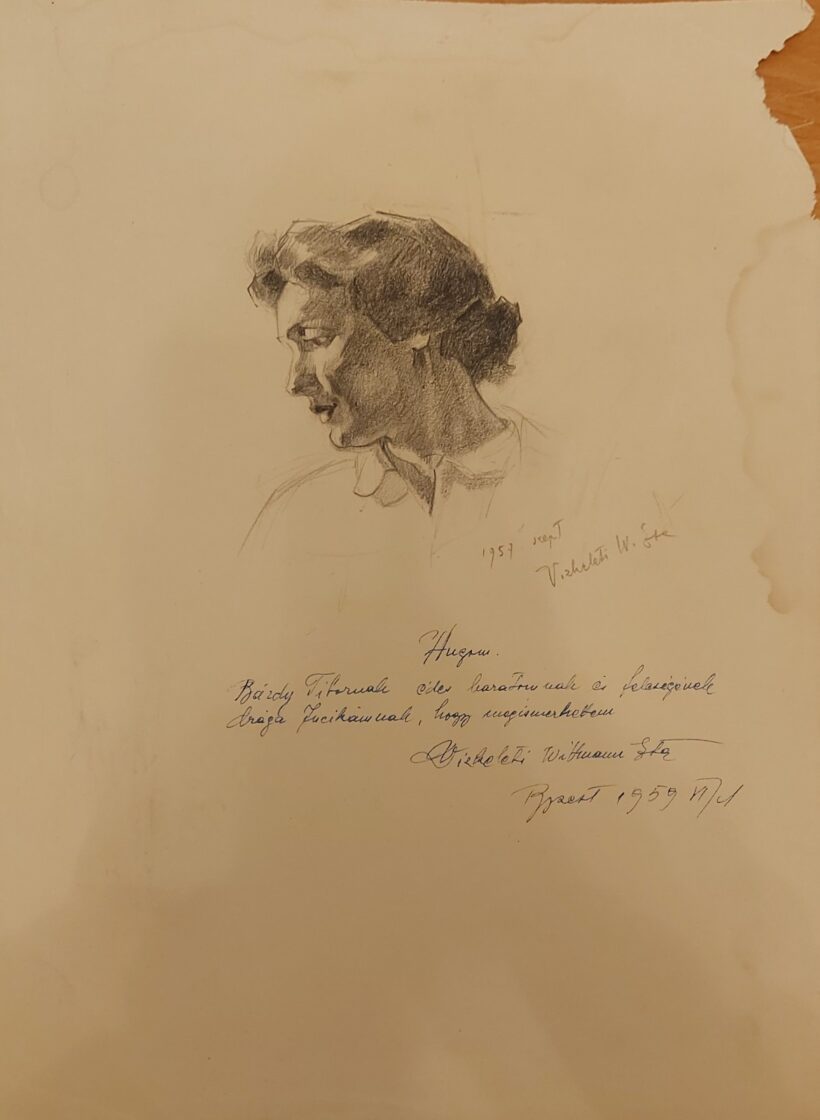 1957 szept
Vizkeleti W. Eta
Hugom.
Bárdy Tibornak édes barátomnak és feleségének
drága Jucikámnak, hogy megismerhettem
Vizkeleti Wittmann Eta
Bpest 1959